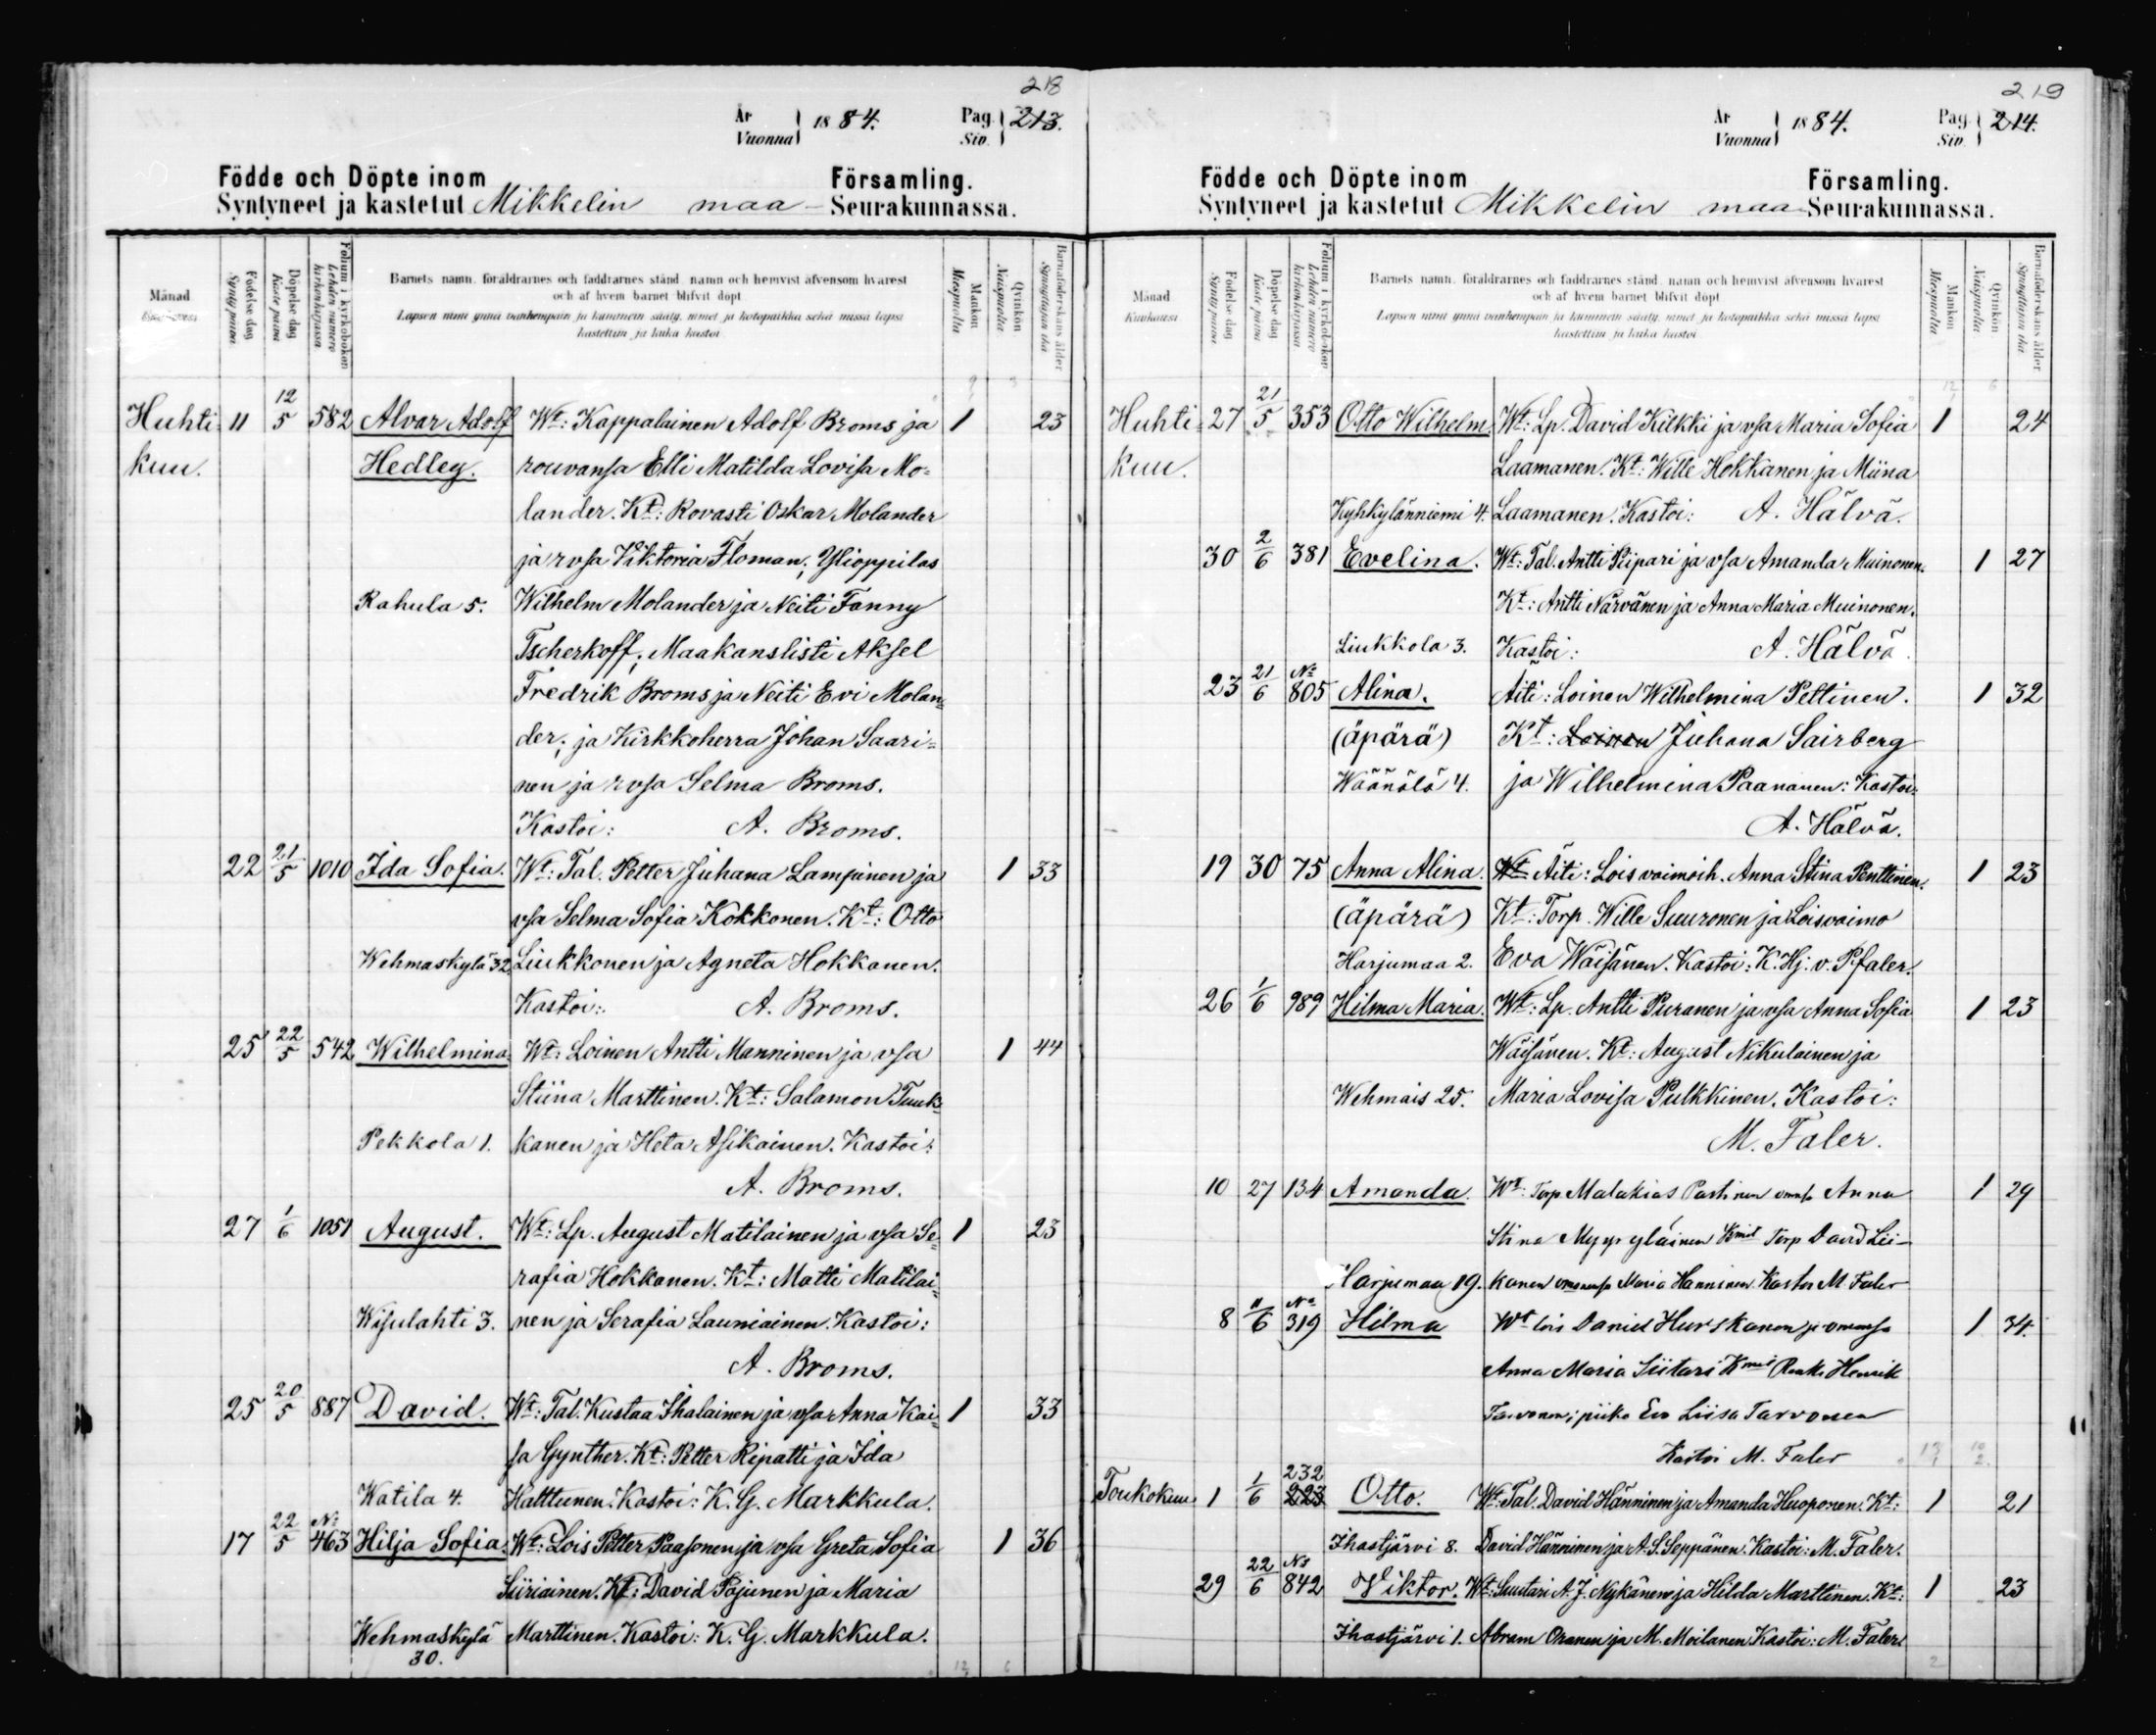 218
År
Vuonna
1884.
Pag.
Siv.
213.
Födde och Döpte inom Församling.
Syntyneet ja kastetut Mikkelin maa-Seurakunnassa.
Månad
Födelse dag
Synty päivä
Döpelse dag
Kaste päivä
Folium i kyrkoboken
Lehden numero kirkonkirjassa
Barnets namn, föräldrarnes och faddrarnes stånd, namn och hemvist äfvensom hvarest
och af hvem barnet blifvit döpt
Lapsen nimi ynnä vanhempain ja kummein sääty, nimet ja kotopaikka sekä missä lapsi
kastettiin ja kuka kastoi
Mankön
Miespuolia
Qvinkön
Naispuolia
Barnaföderskans ålder
Synnyttäjän ikä
Huhti- 11 12/5 582 Alvar Adolf Wt: Kappalainen Adolf Broms ja 1 23
kuu. Hedley. rouvansa Elli Matilda Lovisa Mo-
lander. Kt: Rovasti Oskar Molander
ja rvsa Viktoria Floman; Ylioppilas
Rahula 5. Wilhelm Molander ja Neiti Fanny
Tscherkoff; Maakanslisti Aksel
Fredrik Broms ja Neiti Evi Molan-
der; ja Kirkkoherra Johan Saari-
nen ja rvsa Selma Broms.
Kastoi: A. Broms.
22 21/5 1010 Ida Sofia. Wt: Tal. Petter Juhana Lampinen ja 1 33
vsa Selma Sofia Kokkonen. Kt: Otto
Wehmaskylä 32. Liukkonen ja Agneta Hokkanen.
Kastoi: A. Broms.
25 22/5 542 Wilhelmina. Wt: Loinen Antti Manninen ja vsa 1 44
Stiina Marttinen. Kt: Salamon Tuuk-
Pekkola 1. kanen ja Heta Asikainen. Kastoi:
A. Broms.
27 1/6 1051 August. Wt: Lp. August Matilainen ja vsa Se- 1 23
rafia Hokkanen. Kt: Matti Matilai-
Wisulahti 3. nen ja Serafia Launiainen. Kastoi:
A. Broms.
25 20/5 887 David. Wt: Tal. Kustaa Ihalainen ja vsa Anna Kai- 1 33
sa Gynther. Kt: Petter Ripatti ja Ida
Watila 4. Halttunen. Kastoi: K. G. Markkula.
17 22/5 No 463 Hilja Sofia. Wt: Lois Petter Paasonen ja vsa Greta Sofia 1 36
Siiriainen. Kt: David Pajunen ja Maria
Wehmaskylä Marttinen. Kastoi: K. G. Markkula.
30.
219
År
Vuonna
1884.
Pag.
Siv.
214.
Födde och Döpte inom Församling.
Syntyneet ja kastetut Mikkelin maa Seurakunnassa.
Månad
Kuukausi
Födelse dag
Synty päivä
Döpelse dag
Kaste päivä
Folium i kyrkoboken
Lehden numero kirkonkirjassa
Barnets namn, föräldrarnes och faddrarnes stånd, namn och hemvist äfvensom hvarest
och af hvem barnet blifvit döpt
Lapsen nimi ynnä vanhempain ja kummein sääty, nimet ja kotopaikka sekä missä lapsi
kastettiin ja kuka kastoi
Mankön
Miespuolia
Qvinkön
Naispuolia
Barnaföderskans ålder
Synnyttäjän ikä
Huhti- 27 21/5 353 Otto Wilhelm. Wt: Lp. David Kilkki ja vsa Maria Sofia 1 24
kuu. Laamanen. Kt: Wille Hokkanen ja Miina
Kyhkylänniemi 4. Laamanen. Kastoi: A. Hälvä.
30 2/6 381 Evelina. Wt: Tal. Antti Piipari ja vsa Amanda Muinonen. 1 27
Kt: Antti Närvänen ja Anna Maria Muinonen.
Liukkola 3. Kastoi: A. Hälvä.
23 21/6 No 805 Alina. Äiti: Loinen Wilhelmina Pettinen. 1 32
(äpärä) Kt: Loinen Juhana Sairberg
Wäänälä 4. ja Wilhelmina Paananen: Kastoi:
A. Hälvä.
19 30 75 Anna Alina. Wt Äiti: Lois vaimoih. Anna Stina Penttinen. 1 23
(äpärä) Kt: Torp. Wille Suuronen ja Loisvaimo
Harjumaa 2. Eva Wäisänen. Kastoi: K. Hj. v. Pfaler.
26 1/6 989 Hilma Maria. Wt: Lp. Antti Puranen ja vsa Anna Sofia 1 23
Wäisänen. Kt: August Nikulainen ja
Wehmais 25. Maria Lovisa Pulkkinen. Kastoi:
M. Faler.
10 27 134 Amanda. Wt: Torp Malakias Partinen Anna 1 29
Stina Myyryläinen Torp David Lii-
Harjumaa 19. kanen Maria Hänninen. Kastoi M. Faler
8 11/6 No 319 Hilma Wt lois Daniel Hurskanen ja 1 34.
Anna Maria Siitari Henrik
Tarvonen; piika Eva Liisa Tarvonen
Kastoi M. Faler
Toukokuu. 1 1/6 232 223 Otto. Wt: Tal. David Hänninen ja Amanda Huoponen. Kt: 1 21
Ihastjärvi 8. David Hänninen ja A. S. Seppänen. Kastoi: M. Faler.
29 22/6 No 842 Viktor. Wt: Suutari A. J. Nykänen ja Hilda Marttinen. Kt: 1 23
Ihastjärvi 1. Abram Oranen ja M. Moilanen. Kastoi: M. Faler.